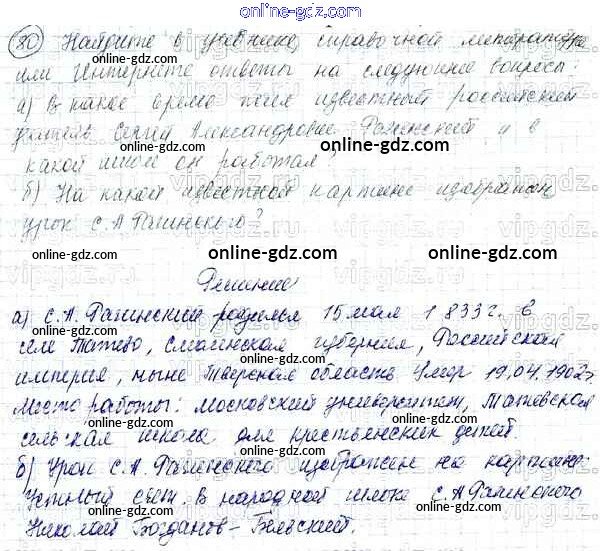 online-gdz.com
80) Найдите в учебнике, справочной литературе
или Интернете ответы на следующие вопросы:
а) В какое время жил известный российский
учитель Сергей Александрович Рачинский и в
какой школе он работал?
б) На какой известной картине изображён
урок С.А Рачинского?
Решение
а) С.А. Рачинский родился 15 мая 1833г. в
селе Татево, Смоленская губерния, Российская
империя, ныне Тверская область Умер 19.04.1902г.
Место работы: московский университет, Татевская
сельская школа для крестьянских детей.
б) Урок С.А. Рачинского изображен на картине
Устный счет. в народной школе С.А Рачинского
Николай Богданов-Бельский.
online-gdz.com